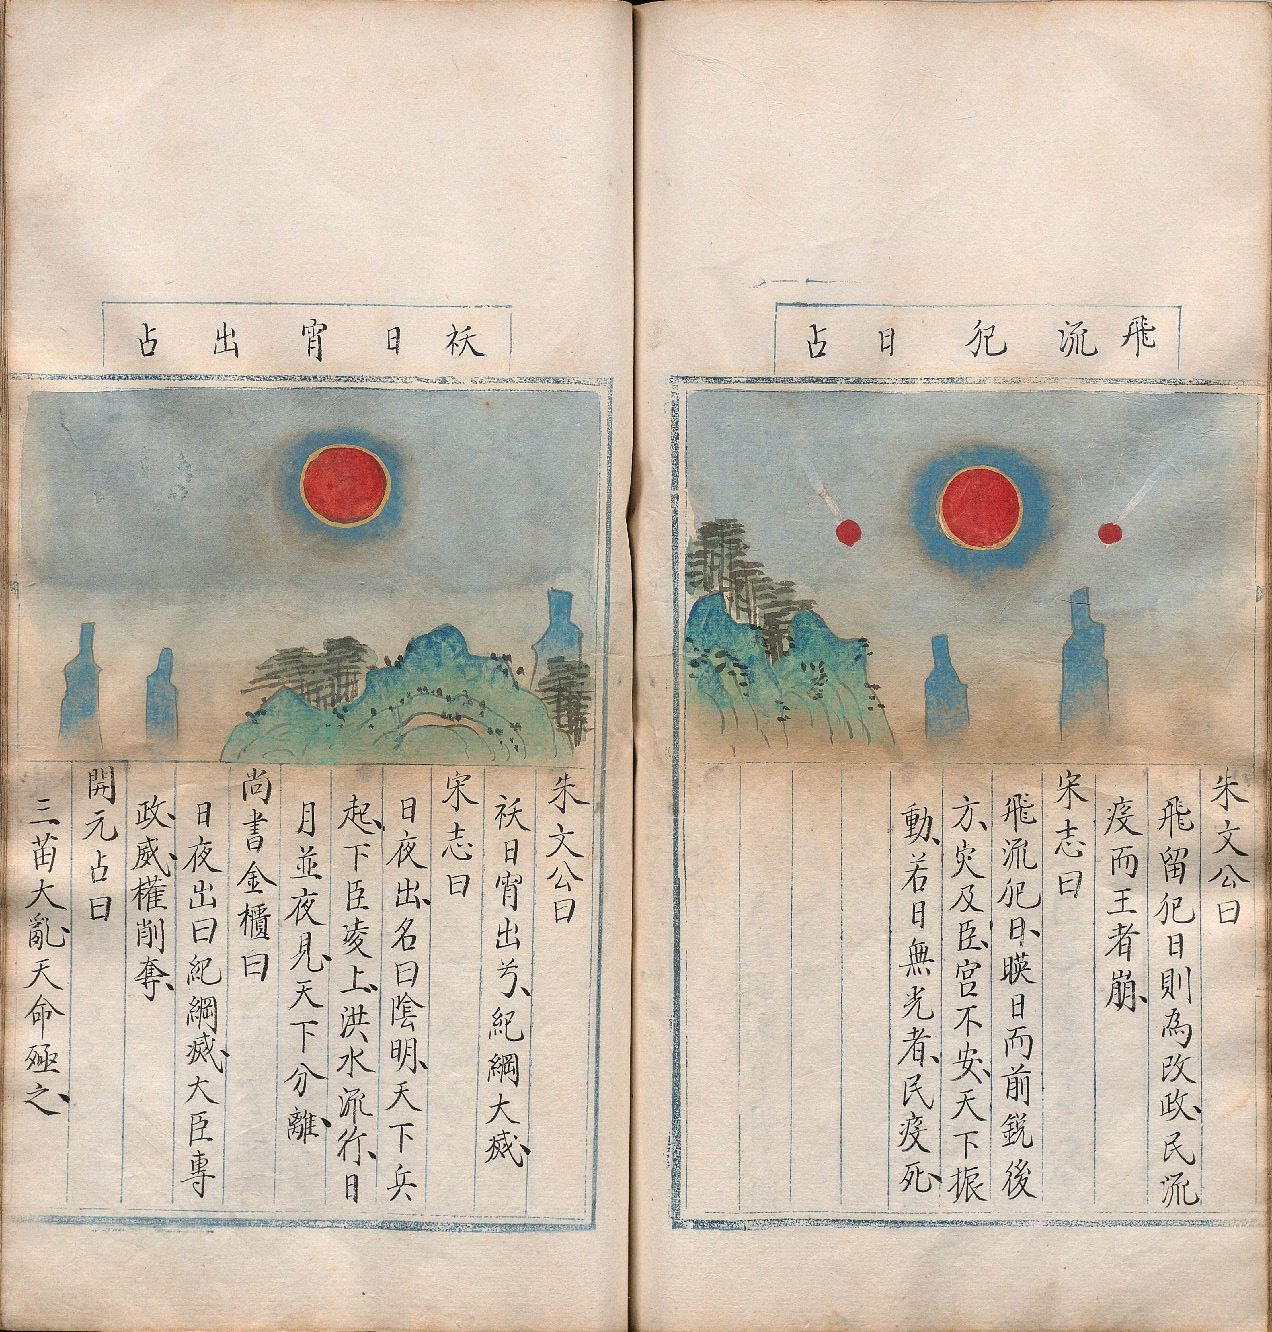 飛流犯日占
朱文公曰
飛留犯日則為改政民流
疫而王者崩
宋志曰
飛流犯日暎日而前鋭後
方灾及臣宮不安天下振
動若日無光者民疫死
祅日宵出占
朱文公曰
祅日宵出兮紀綱大滅
宋志曰
日夜出名曰陰明天下兵
起下臣凌上洪水流行日
月並夜見天下分離
尚書金櫃曰
日夜出曰紀綱滅大臣專
政威權削奪
開元占曰
三苗大亂天命殛之